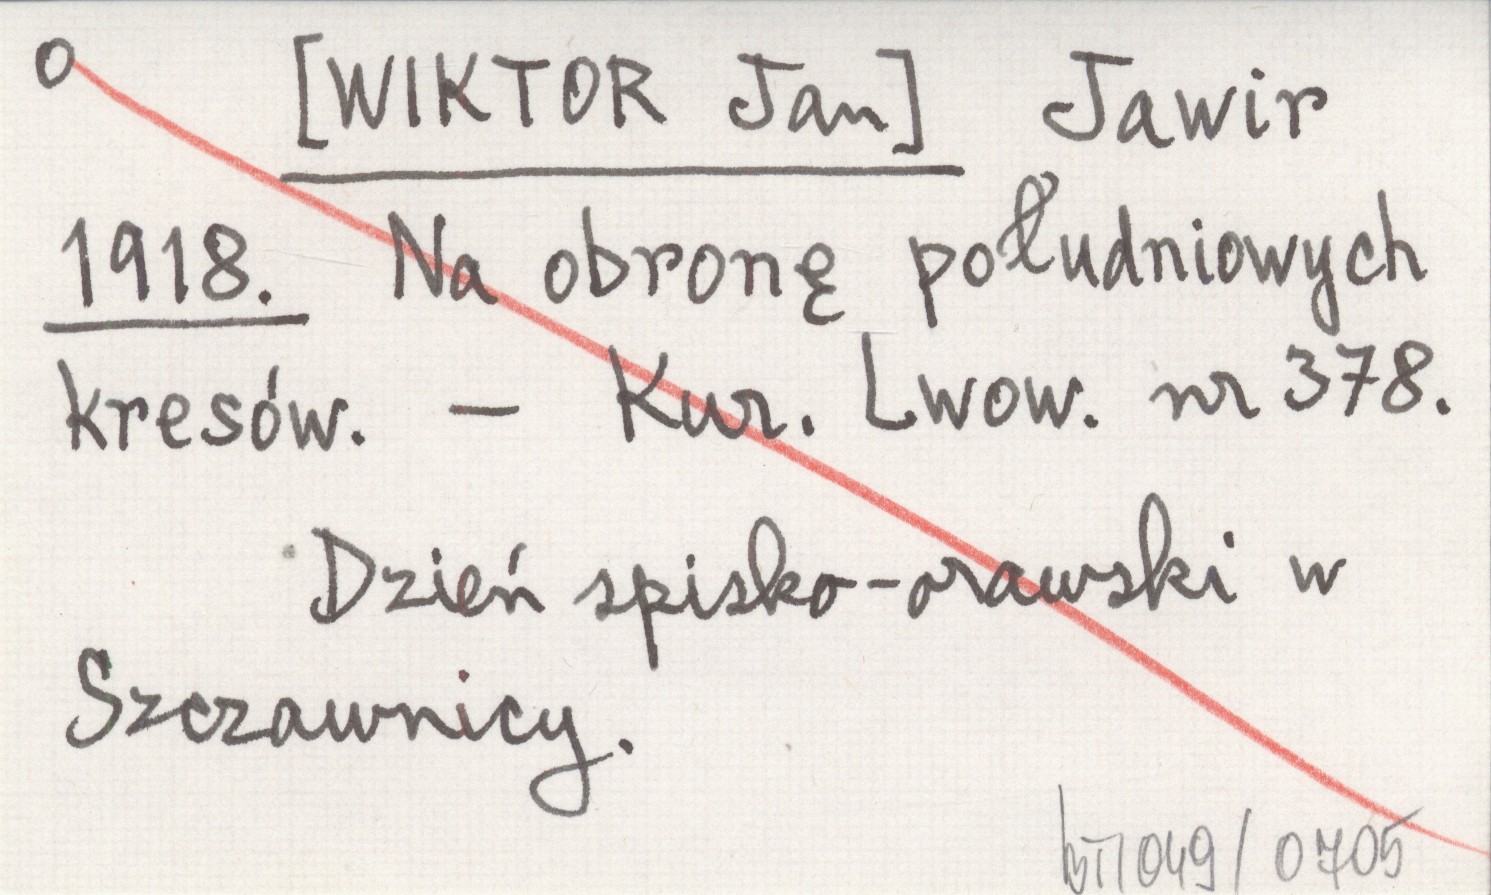 o [WIKTOR Jan] Jawir
1918. Na obronę południowych
kresów. – Kur. Lwow. nr 378.
Dzień spisko-orawski w
Szczawnicy.
049/0705